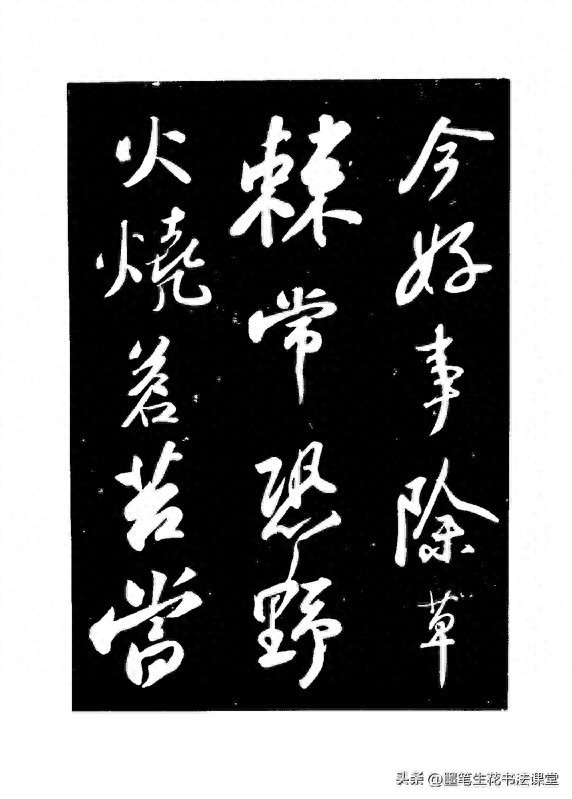 今好事除草
棘常恐野
火燒蒼苔當
头条 @墨笔生花书法课堂